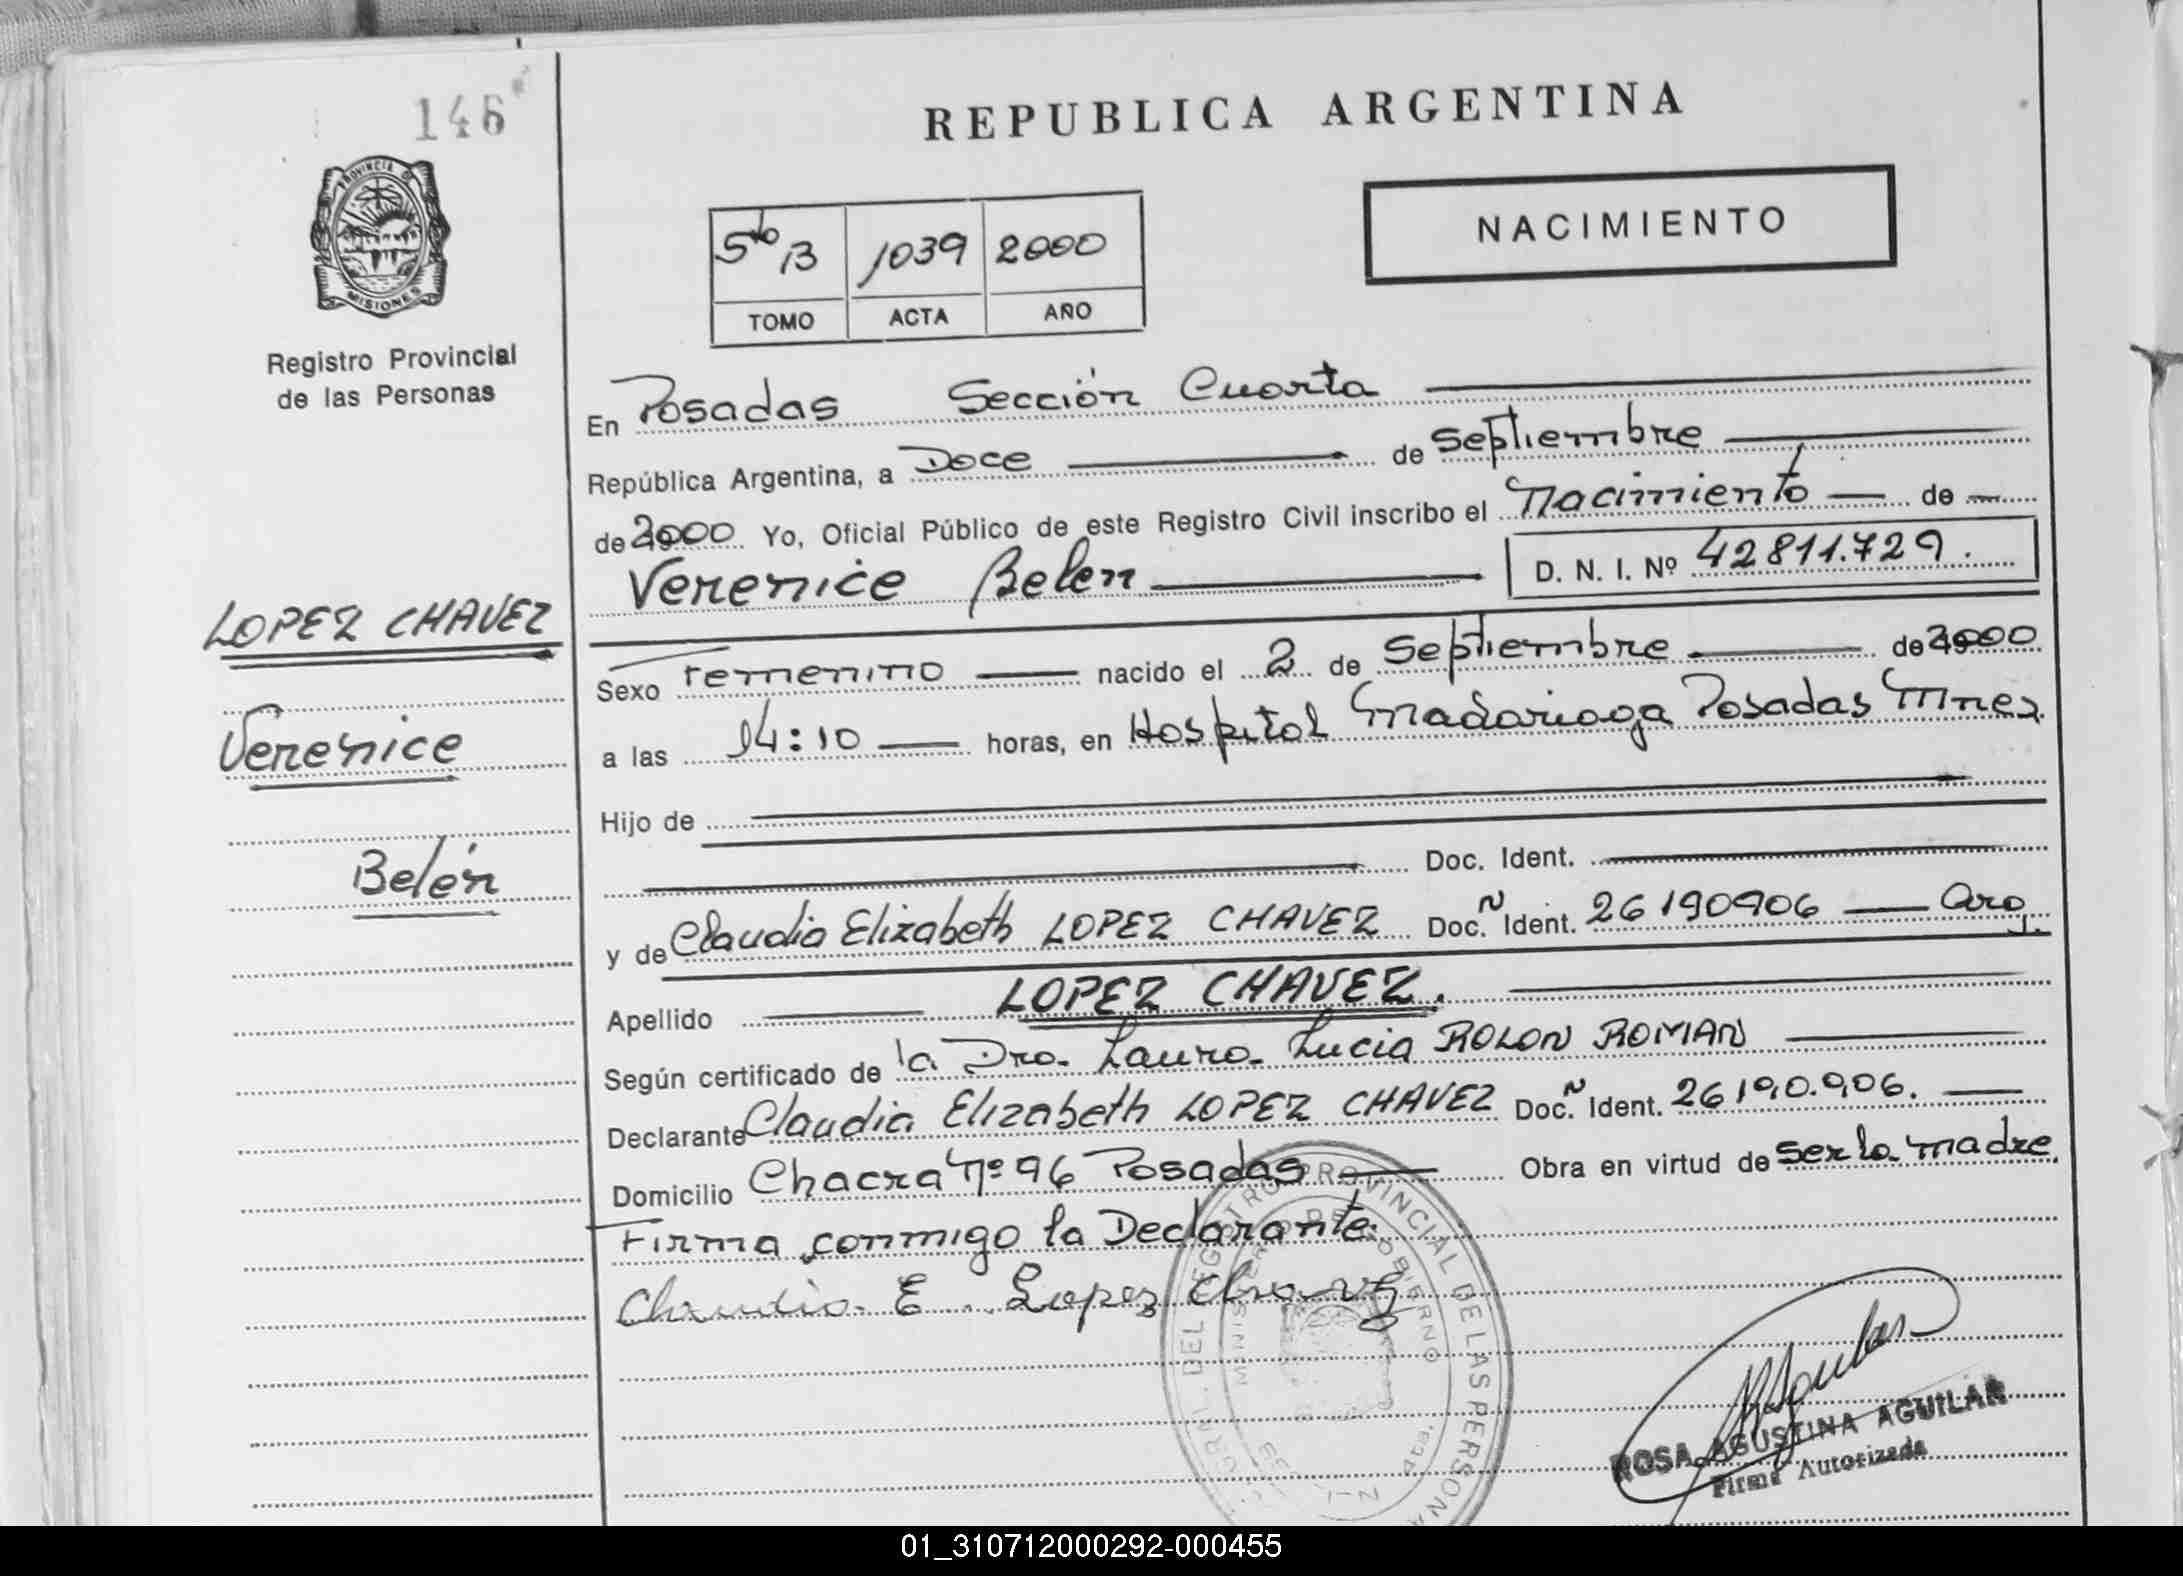 146
REPUBLICA ARGENTINA
PROVINCIA DE
MISIONES
Registro Provincial
de las Personas
5to B 1039 2000
TOMO ACTA AÑO
NACIMIENTO
En Posadas Sección Cuarta
República Argentina, a Doce de Septiembre
de 2000 Yo, Oficial Público de este Registro Civil inscribo el Nacimiento de
Verenice Belen D. N. I. Nº 42811.729.
LOPEZ CHAVEZ
Verenice
Belén
Sexo Femenino nacido el 2 de Septiembre de 2000
a las 14:10 horas, en Hospital Madariaga Posadas Mnes.
Hijo de
Doc. Ident.
y de Claudia Elizabeth LOPEZ CHAVEZ Doc. N Ident. 26190906 Arg.
Apellido LOPEZ CHAVEZ.
Según certificado de la Dra. Laura Lucia ROLON ROMAN
Declarante Claudia Elizabeth LOPEZ CHAVEZ Doc. N Ident. 26190.906.
Domicilio Chacra Nº 96 Posadas Obra en virtud de ser la madre.
Firma conmigo la Declarante.
Claudia E. Lopez Chavez
DEL REGISTRO PROVINCIAL DE LAS PERSONAS
MINISTERIO DE GOBIERNO
ROSA AGUSTINA AGUILAR
Firma Autorizada
01_310712000292-000455